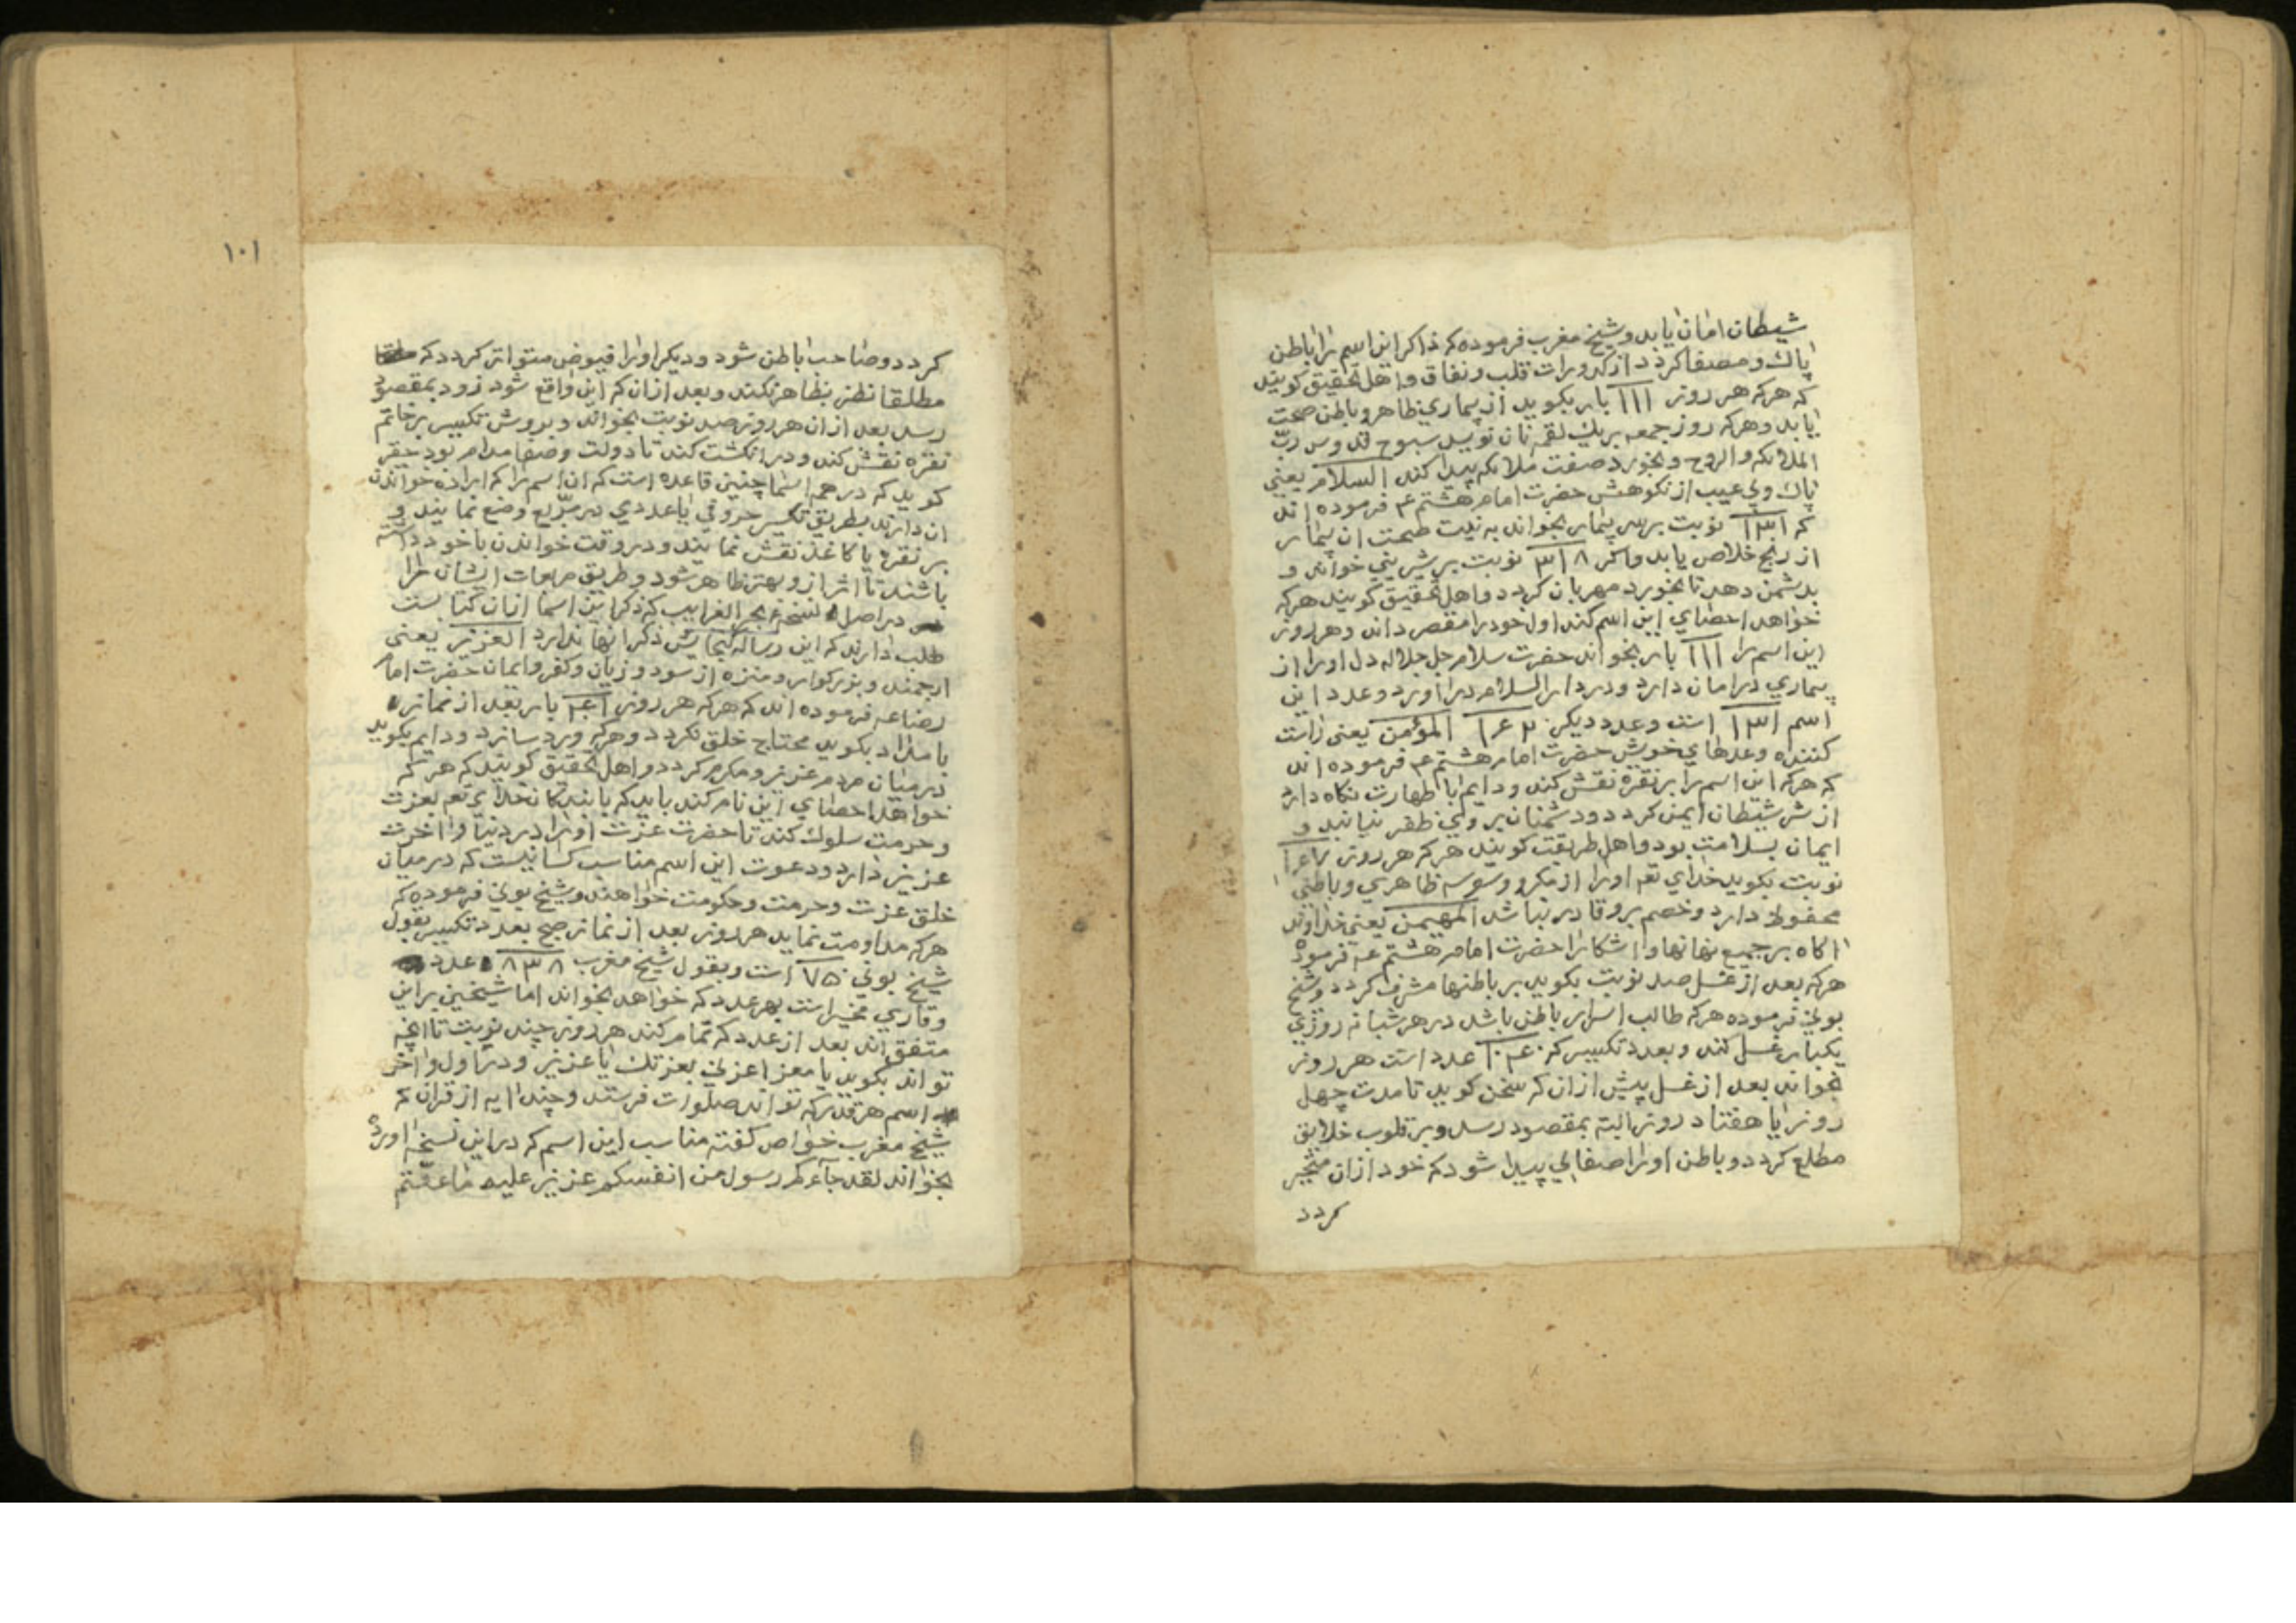 شیطان امان یابد و شیخ مغرب فرموده که ذاکر این اسم را باطن
پاک و مصفا کردد از کدورات قلب و نفاق و اهل تحقیق کویند
که هر که هر روز ۱۱۱ بار بکوید از بیماري ظاهر و باطن صحت
یابد و هر که روز جمعه بر یک لقمه نان نویسد سبوح قدوس ربّ
الملائکه والروح و بخورد صفت ملائکه پیدا کند السلام یعني
پاک و بي عیب از نکوهش حضرت امام هشتم ع م فرموده اند
که ۱۳۱ نوبت بر سر بیمار بخواند به نیت صحت ان بیمار
از رنج خلاص یابد و اکر ۳۱۸ نوبت بر شیریني خواند و
بدشمن دهد تا بخورد مهربان کردد و اهل تحقیق کویند هر که
خواهد احصاي این اسم کند اول خود را مقصر داند و هر روز
این اسم را ۱۱۱ بار بخواند حضرت سلام جل جلاله دل او را از
بیماري در امان دارد و در دار السلام در اورد و عدد این
اسم ۱۳۱ است و عدد دیکر المؤمن یعني راست
کننده وعدهاي خویش حضرت امام هشتم ع م فرموده اند
که هر که این اسم را بر نقره نقش کند و دایم با طهارت نکاه دارد
از شر شیطان ایمن کردد و دشمنان بر وي ظفر نیابند و
ایمان بسلامت بود و اهل طریقت کویند هر که هر روز
نوبت بکوید خداي تعه او را از مکر و وسوسه ظاهري و باطني
محفوظ دارد و خصم برو قادر نباشد المهیمن یعني خداوند
اکاه بر جمیع نهانها و اشکارا حضرت امام هشتم عه فرموده
هر که بعد از غسل صد نوبت بکوید بر باطنها مشرف کردد و شیخ
بوني فرموده هر که طالب اسرار باطن باشد در هر شبانه روزي
یکبار غسل کند و بعدد تکسیر که عدد است هر روز
بخواند بعد از غسل پیش از ان که سخن کوید تا مدت چهل
روز یا هفتاد روز البته بمقصود رسد و بر قلوب خلایق
مطلع کردد و باطن او را صفایي پیدا شود که خود از ان متحیر
کردد
۱۰۱
کردد و صاحب باطن شود و دیکر او را فیوض متواتر کردد که
مطلقا نظر بظاهر نکند و بعد از ان که این واقع شود زود بمقصود
رسد بعد از ان هر روز صد نوبت بخواند و بروش تکسیر بر خاتم
نقره نقش کند و در انکشت کند تا دولت و صفا مدام بود حقیر
کوید که در همه اسما چنین قاعده است که ان اسم را که اراده خواندن
ان دارند بطریق تکسیر حروفي یا عددي در مربع وضع نمایند و
بر نقره یا کاغذ نقش نمایند و در وقت خواندن با خود داشته
باشند تا اثر از و بهتر ظاهر شود و طریق مربعات ایشان را
در اصل نسخه بحر الغرایب که ذکر این اسما از ان کتابست
طلب دارند که این رساله کنجایش ذکر انها ندارد العزیز یعني
ارجمند و بزرکوار و منزه از سود و زیان و کفر و ایمان حضرت امام
رضا عه فرموده اند که هر که هر روز بار بعد از نماز
بامداد بکوید محتاج خلق نکردد و هر که ورد سازد و دایم بکوید
در میان مردم عزیز و مکرم کردد و اهل تحقیق کویند که هر که
خواهد احصاي این نام کند باید که با بندکان خداي تعه بعزت
و حرمت سلوک کند تا حضرت عزت او را در دنیا و اخرت
عزیز دارد و دعوت این اسم مناسب کسانیست که در میان
خلق عزت و حرمت و حکومت خواهند و شیخ بوني فرموده که
هر که مداومت نماید هر روز بعد از نماز صبح بعدد تکسیر بقول
شیخ بوني ۷۵۰ است و بقول شیخ مغرب ۸۳۸ عدد
و قاري مخیر است بهر عدد که خواهد بخواند اما شیخین بر این
متفق اند بعد از عدد که تمام کند هر روز چند نوبت تا انچه
تواند بکوید یا معز اعزني بعزتک یا عزیز و در اول و اخر
اسم هر قدر که تواند صلوات فرستد و چند ایه از قران که
شیخ مغرب خواص کفته مناسب این اسم که در این نسخه اورده
بخواند لقد جآءکم رسول من انفسکم عزیز علیه ما عنتم